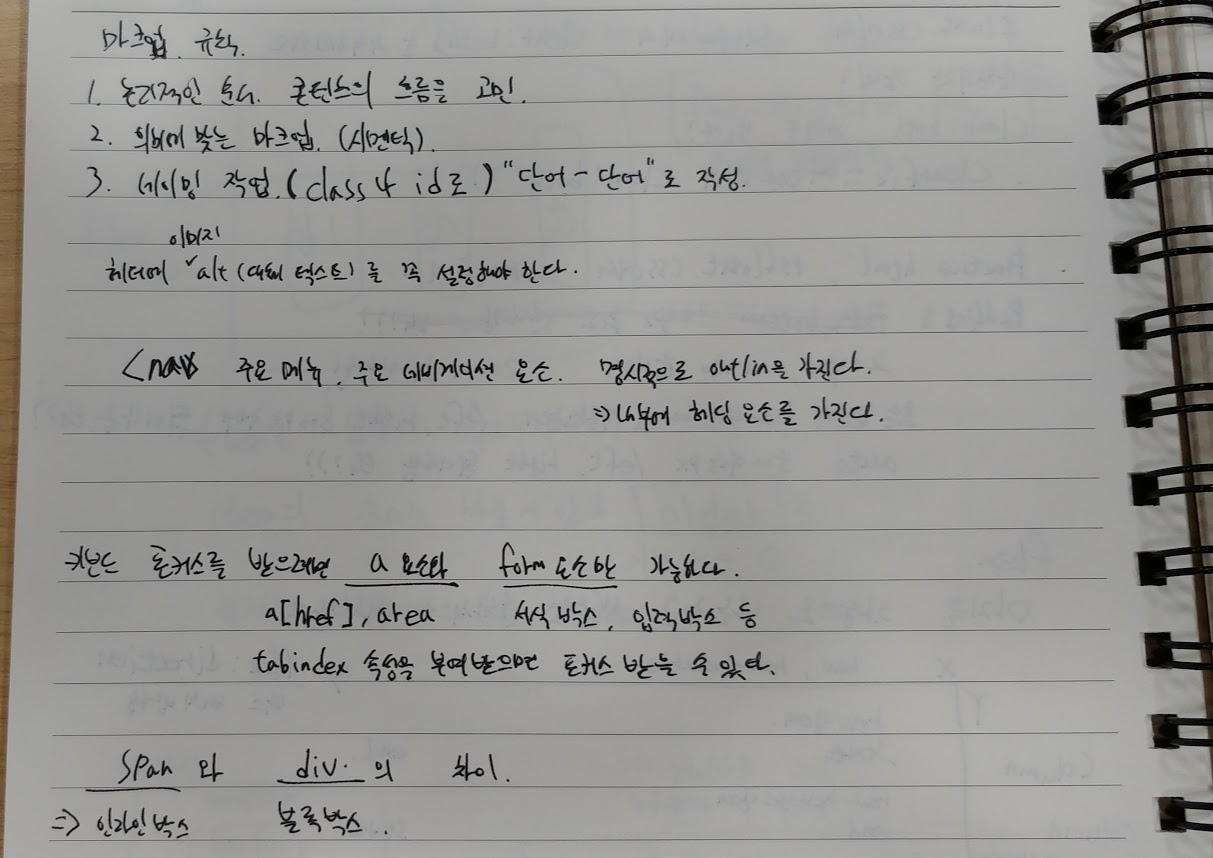 마크업 규칙.
1. 논리적인 순서. 콘텐츠의 흐름을 고민.
2. 의미에 맞는 마크업. (시멘틱).
3. 네이밍 작업. (class나 id로) "단어-단어"로 작성.
이미지
헤더에 ˅alt (대체 텍스트)를 꼭 설정해야 한다.
<nav> 주요 메뉴, 주요 네비게이션 요소. 명시적으로 outlin을 가진다.
⇒ 내부에 헤딩 요소를 가진다.
키보드 포커스를 받으려면 a 요소와 form 요소만 가능하다.
a[href], area 서식 박스, 입력박스 등
tabindex 속성을 부여받으면 포커스 받을 수 있다.
span 와 div. 의 차이.
⇒ 인라인박스 블록박스.